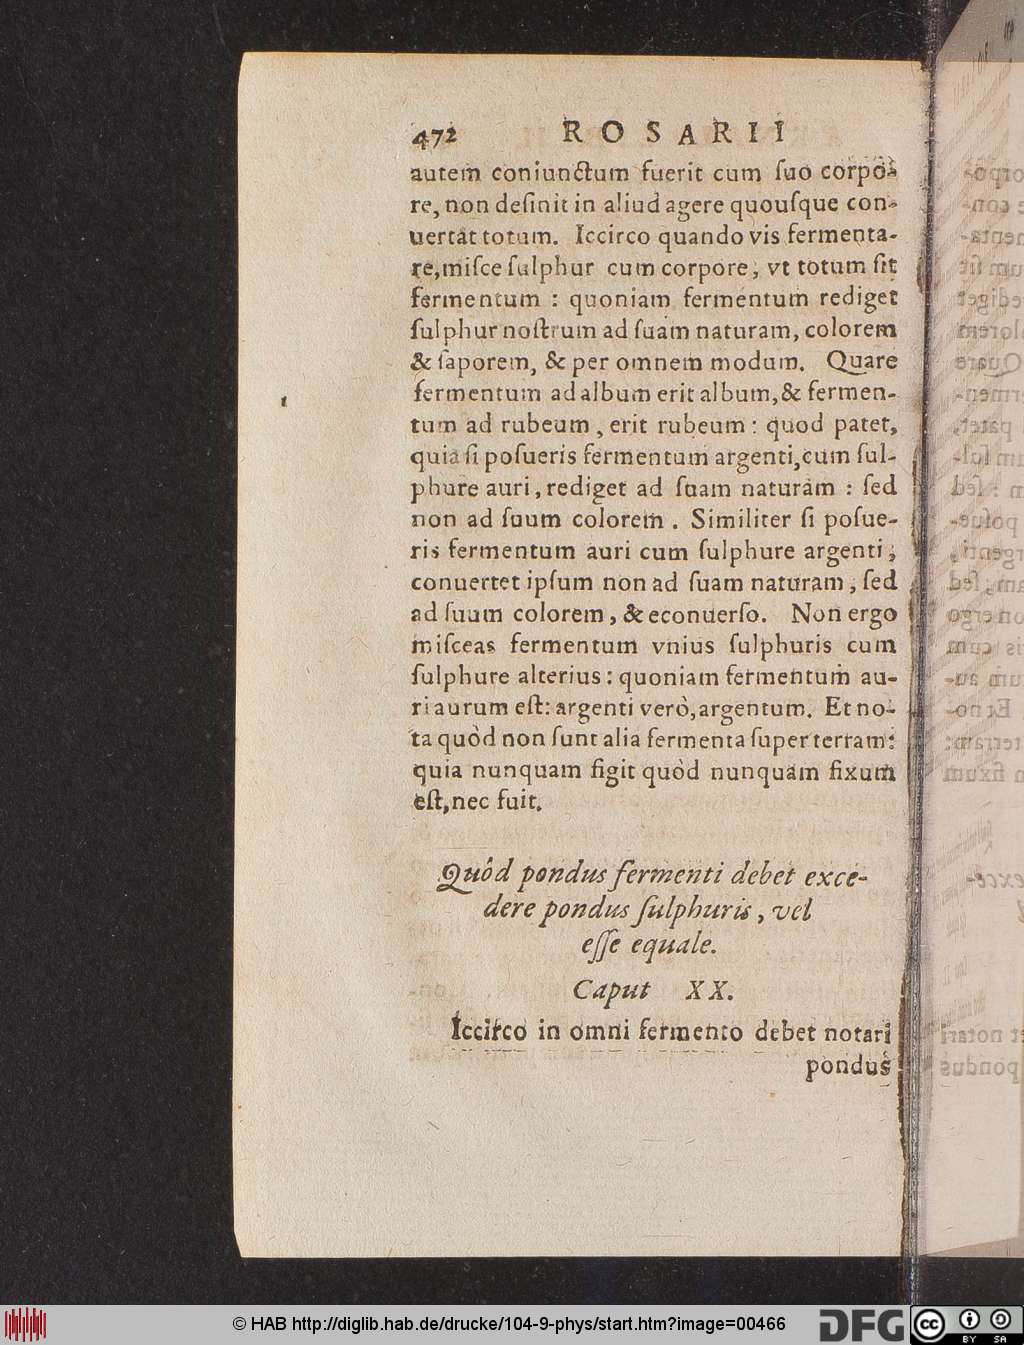 472 ROSARII
autem coniunctum fuerit cum ſuo corpo-
re, non deſinit in aliud agere quouſque con-
uertat totum. Iccirco quando vis fermenta-
re, miſce ſulphur cum corpore, vt totum ſit
fermentum : quoniam fermentum rediget
ſulphur noſtrum ad ſuam naturam, colorem
& ſaporem, & per omnem modum. Quare
fermentum ad album erit album, & fermen-
tum ad rubeum, erit rubeum: quod patet,
quia ſi poſueris fermentum argenti, cum ſul-
phure auri, rediget ad ſuam naturam : ſed
non ad ſuum colorem. Similiter ſi poſue-
ris fermentum auri cum ſulphure argenti,
conuertet ipſum non ad ſuam naturam, ſed
ad ſuum colorem, & econuerſo. Non ergo
miſceas fermentum vnius ſulphuris cum
ſulphure alterius: quoniam fermentum au-
ri aurum eſt: argenti verò, argentum. Et no-
ta quòd non ſunt alia fermenta ſuper terram:
quia nunquam figit quòd nunquam fixum
eſt, nec fuit.
Quòd pondus fermenti debet exce-
dere pondus ſulphuris, vel
eſſe equale.
Caput XX.
Iccirco in omni fermento debet notari
pondus
© HAB http://diglib.hab.de/drucke/104-9-phys/start.htm?image=00466
DFG
cc
BY SA